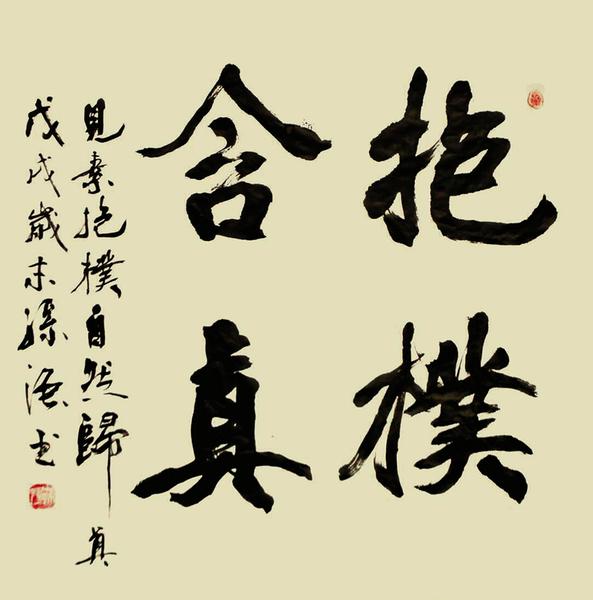 抱樸
含真
見素抱樸自然歸真
戊戌歲末孫海书